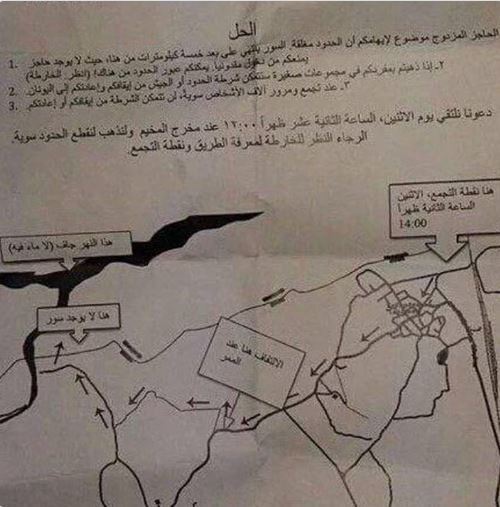 الحل
1. الحاجز المزدوج موضوع لإيهامكم أن الحدود مغلقة. السور ينتهي على بعد خمسة كيلومترات من هنا، حيث لا يوجد حاجز
يمنعكم من دخول مقدونيا. يمكنكم عبور الحدود من هناك! (انظر الخارطة)
2. ٢- إذا ذهبتم بمفردكم في مجموعات صغيرة ستتمكن شرطة الحدود أو الجيش من إيقافكم وإعادتكم إلى اليونان.
3. ٣- عند تجمع ومرور آلاف الأشخاص سوية، لن تتمكن الشرطة من إيقافكم أو إعادتكم.
دعونا نلتقي يوم الاثنين، الساعة الثانية عشر ظهراً ١٢:٠٠ عند مخرج المخيم ولنذهب لنقطع الحدود سوية.
الرجاء النظر للخارطة لمعرفة الطريق ونقطة التجمع.
هنا نقطة التجمع، الاثنين
الساعة الثانية ظهراً
14:00
هذا النهر جاف (لا ماء فيه)
هنا لا يوجد سور
الالتفاف هنا عند
الممر